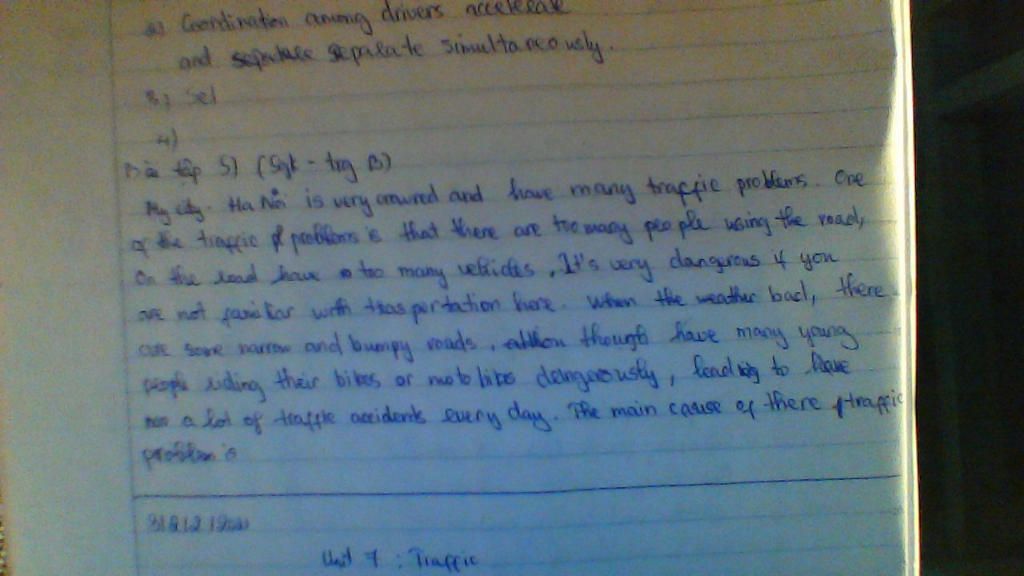 Coordination among drivers accelerate
and separate simultaneously.
3) Sel
4)
Bài tập 5) (Sgk - trg B)
My city. Ha Nội is very crowred and have many traffic problems. One
of the traffic problems is that there are too many people using the road,
on the road have too many vehicles, It's very dangerous if you
are not familiar with trasportation here. When the weather bad, there
are some narrow and bumpy roads, though have many young
people riding their bikes or motobikes dangerously, leading to have
a lot of traffic accidents every day. The main cause of there traffic
problem is
Unit 7 : Traffic